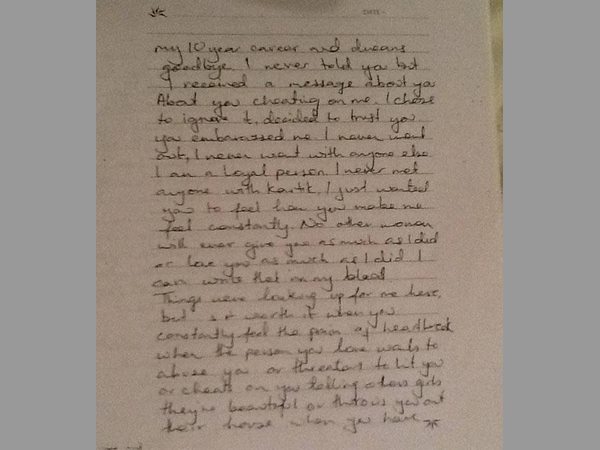 DATE:
my 10 year career and dreams
goodbye. I never told you but
I received a message about you
About you cheating on me. I chose
to ignore it, decided to trust you
you embarassed me. I never went
out, I never went with anyone else
I am a loyal person. I never met
anyone with Kartik, I just wanted
you to feel how you make me
feel constantly. No other woman
will ever give you as much as I did
or love you as much as I did I
can write that in my blood
Things were looking up for me here,
but is it worth it when you
constantly feel the pain of heartbreak
when the person you love wants to
abuse you or threatens to hit you
or cheats on you telling other girls
they're beautiful or throws you out
their house when you have